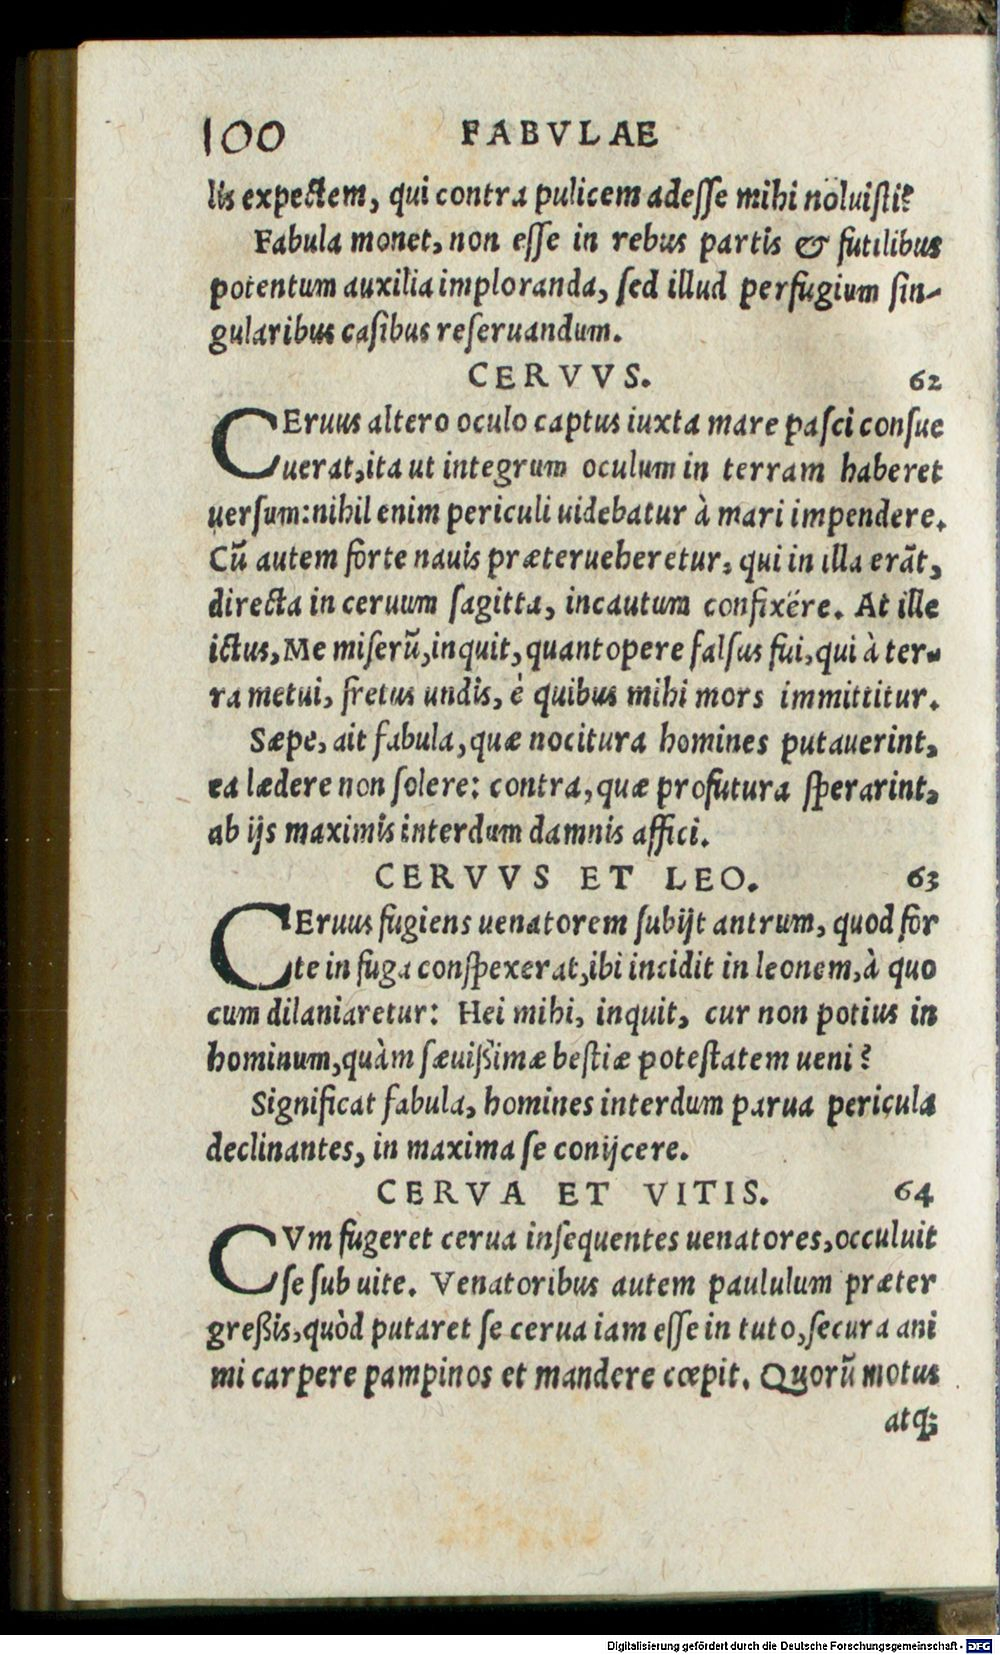 100 FABVLAE
lis expectem, qui contra pulicem adesse mihi noluisti?
Fabula monet, non esse in rebus partis & futilibus
potentum auxilia imploranda, sed illud perfugium sin-
gularibus casibus reseruandum.
CERVVS. 62
CEruus altero oculo captus iuxta mare pasci consue
uerat, ita ut integrum oculum in terram haberet
uersum: nihil enim periculi uidebatur à mari impendere.
Cũ autem forte nauis præterueheretur, qui in illa erãt,
directa in ceruum sagitta, incautum confixëre. At ille
ictus, Me miserũ, inquit, quantopere falsus fui, qui à ter-
ra metui, fretus undis, è quibus mihi mors immittitur.
Sæpe, ait fabula, quæ nocitura homines putauerint,
ea lædere non solere: contra, quæ profutura sperarint,
ab ijs maximis interdum damnis affici.
CERVVS ET LEO. 63
CEruus fugiens uenatorem subijt antrum, quod for
te in fuga conspexerat, ibi incidit in leonem, à quo
cum dilaniaretur: Hei mihi, inquit, cur non potius in
hominum, quàm sæuißimæ bestiæ potestatem ueni?
Significat fabula, homines interdum parua pericula
declinantes, in maxima se conijcere.
CERVA ET VITIS. 64
CVm fugeret cerua insequentes uenatores, occuluit
se sub uite. Venatoribus autem paululum præter
greßis, quòd putaret se cerua iam esse in tuto, secura ani
mi carpere pampinos et mandere cœpit. Quorũ motus
atq;
Digitalisierung gefördert durch die Deutsche Forschungsgemeinschaft - DFG